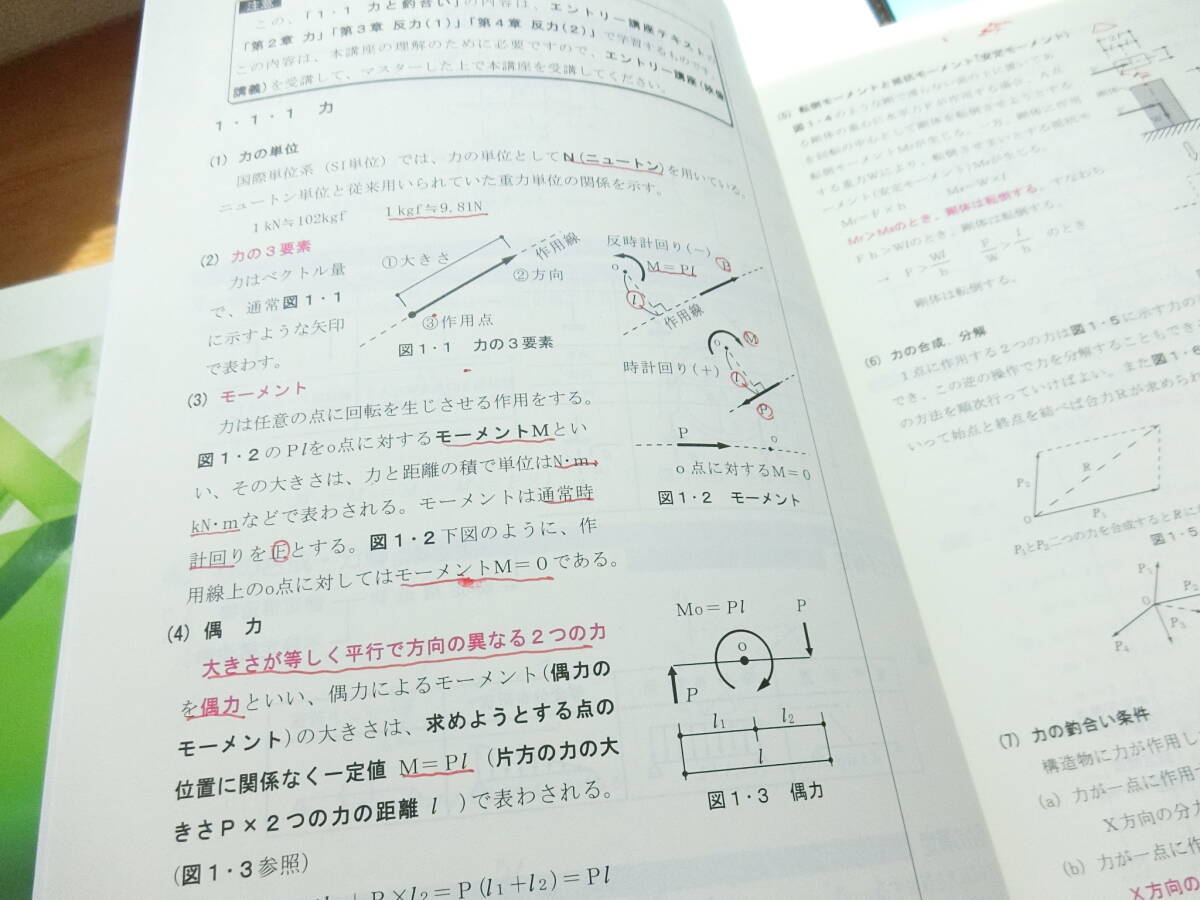 注意
この、「1・1 力と釣合い」の内容は、エントリー講座テキストの
「第2章 力」「第3章 反力(1)」「第4章 反力(2)」で学習するものです。
この内容は、本講座の理解のために必要ですので、エントリー講座(映像
講義)を受講して、マスターした上で本講座を受講してください。
1・1・1 力
(1) 力の単位
国際単位系(SI単位)では、力の単位としてN(ニュートン)を用いている。
ニュートン単位と従来用いられていた重力単位の関係を示す。
1kN≒102kgf 1kgf≒9.81N
(2) 力の3要素
力はベクトル量
で、通常図1・1
に示すような矢印
で表わす。
①大きさ
作用線
②方向
③作用点
図1・1 力の3要素
反時計回り(−)
M=Pl
P
o
l
作用線
時計回り(+)
o
M
l
P
P
o
o点に対するM=0
図1・2 モーメント
(3) モーメント
力は任意の点に回転を生じさせる作用をする。
図1・2のPlをo点に対するモーメントMとい
い、その大きさは、力と距離の積で単位はN・m、
kN・mなどで表わされる。モーメントは通常時
計回りを正とする。図1・2下図のように、作
用線上のo点に対してはモーメントM=0である。
(4) 偶 力
大きさが等しく平行で方向の異なる2つの力
を偶力といい、偶力によるモーメント(偶力の
モーメント)の大きさは、求めようとする点の
位置に関係なく一定値 M=Pl (片方の力の大
きさP×2つの力の距離 l )で表わされる。
(図1・3参照)
P×l2=P(l1+l2)=Pl
Mo=Pl
P
o
P
l1
l2
l
図1・3 偶力
(5) 転倒モーメントと抵抗モーメント(安定モーメント)
図1・4のような剛で滑らない面の上に置いてあ
る剛体の重心に水平力Pが作用する場合、A点
を回転の中心として剛体を転倒させようとする
転倒モーメントMrが生じる。一方、剛体に作用
する重力Wにより、転倒させまいとする抵抗モ
ーメント(安定モーメント)Msが生じる。
Mr=F×h Ms=W×l
Mr>Msのとき、剛体は転倒する。すなわち
Fh>Wlのとき、剛体は転倒する。
→ F>Wl/h F/W>l/h のとき
剛体は転倒する。
(6) 力の合成、分解
1点に作用する2つの力は図1・5に示す力の
でき、この逆の操作で力を分解することもでき
の方法を順次行っていけばよい。また図1・6
いって始点と終点を結べば合力Rが求められ
P2
R
O
P1
P1とP2二つの力を合成するとRに
図1・5
P5
O
P2
P3
P4
(7) 力の釣合い条件
構造物に力が作用し
(a) 力が一点に作用す
X方向の分力
(b) 力が一点に作
X方向の